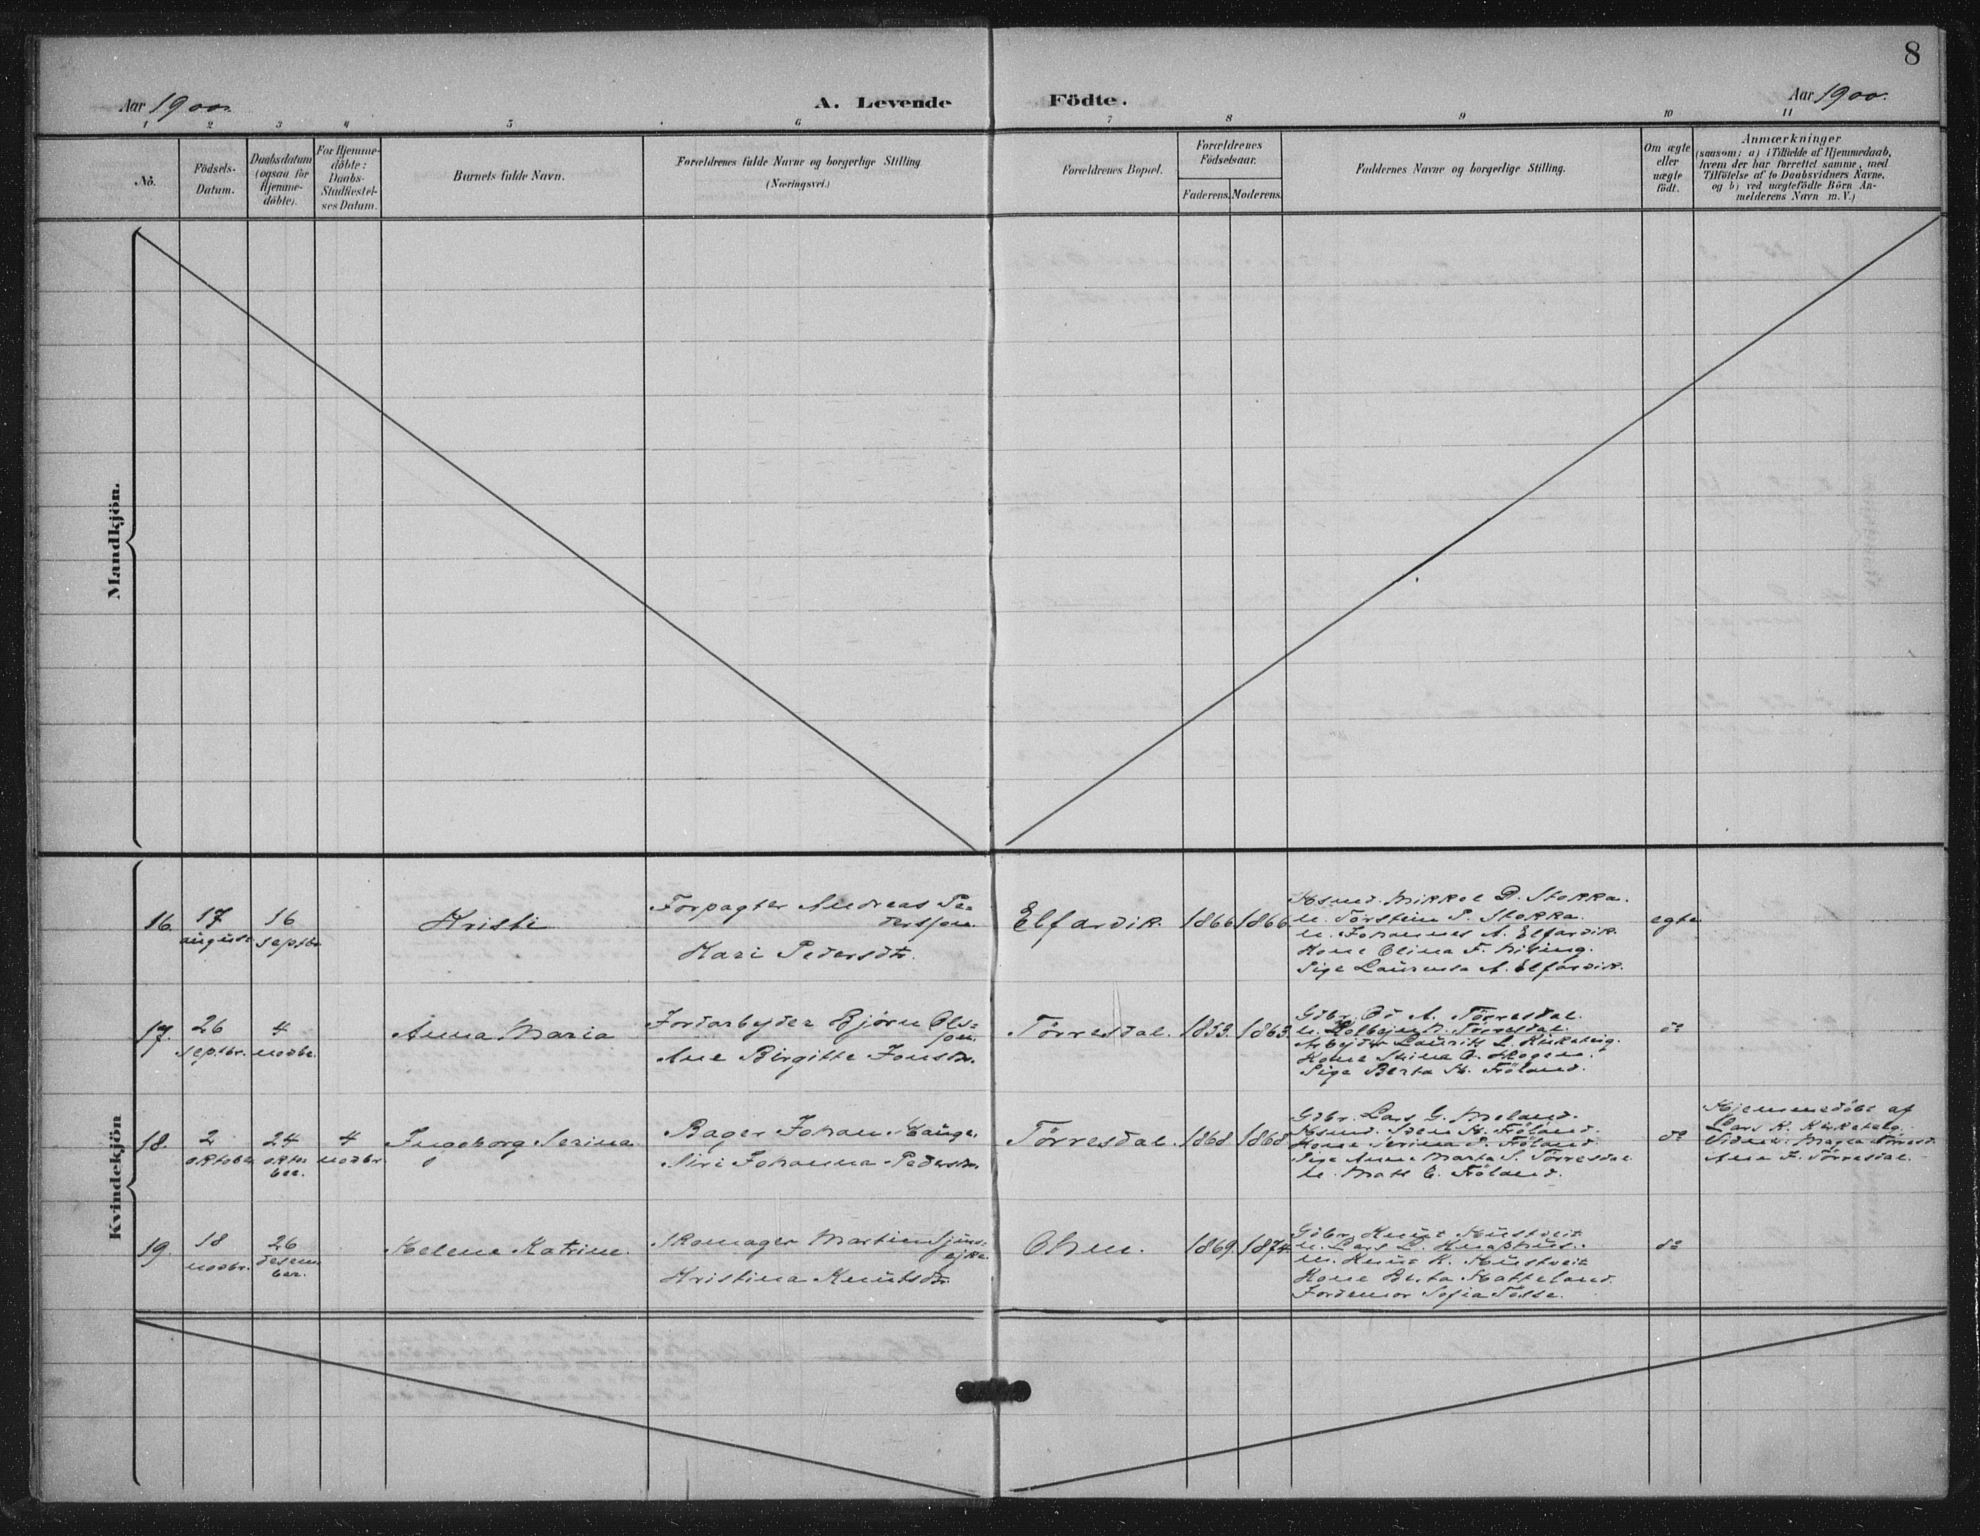 8
Aar 1900.
A. Levende Födte.
Aar 1900.
1 2 3 4 5 6 7 8 9 10 11
No.
Födsels-
Datum.
Daabsdatum
(ogsaa for
Hjemme-
døbte).
For Hjemme-
døbte:
Daabs-
Stadfæstel-
ses Datum.
Barnets fulde Navn.
Forældrenes fulde Navne og borgerlige Stilling
(Næringsvei.)
Forældrenes Bopæl.
Forældrenes
Födselsaar.
Faderens. Moderens.
Faddernes Navne og borgerlige Stilling.
Om ægte
eller
uægte
født.
Anmærkninger
(saasom: a) i Tilfælde af Hjemmedaab,
hvem der har forrettet samme, med
Tilföielse af to Daabsvidners Navne,
og b) ved uægtefödte Börn An-
melderens Navn m. V.)
Mandkjön.
Kvindekjön
16.
17
august
16
septbr
Kristi
Forpagter Andreas Pe-
dersson.
Kari Pedersdtr.
Elfarvik.
1866.
1866.
Ksmd. Mikkel D. Stokka.
U. Torstein P. Stokka.
U. Johannes A. Elfarvik.
Kone Olina F.
Pige Laurensa A. Elfarvik.
egte
17.
26
septbr.
4
novbr.
Anna Maria
Jordarbejder Bjørn Ols-
son.
Ane Birgitte Jonsdtr.
Tørresdal.
1853.
1863.
Gdbr. Od A. Tørresdal.
U. Kolbejn D. Tørresdal.
Arbejder Laurits L. Kirketejg.
Kone Stina O. Skogen.
Pige Berta K. Frøland.
do
18.
2
oktober
24
okto-
ber.
4
novbr
Ingeborg Serina
Bager Johan Hauge.
Siri Johanna Pedersdtr.
Tørresdal.
1868.
1868.
Gdbr. Lars G. Meland.
Ksmd. Sven K. Frøland.
Kone Serina S. Frøland.
Pige Anne Marta S. Tørresdal
U. Mats E. Frøland.
do
Hjemmedøbt af
Lars K. Kirketejg.
Vidner: Magla Tørresd.
Ane F. Tørresdal.
19.
18
novbr.
26
desem-
ber.
Helene Katrine.
Skomager Martin Tjøns-
ejke.
Kristina Knutsdtr.
Olsen.
1869.
1874.
Gdbr. Knut Hustveit
U. Lars L. Knaphus.
U. Knut K. Hustveit
Kone Berta Hatteland.
Jordemor Sofia Tosse.
do